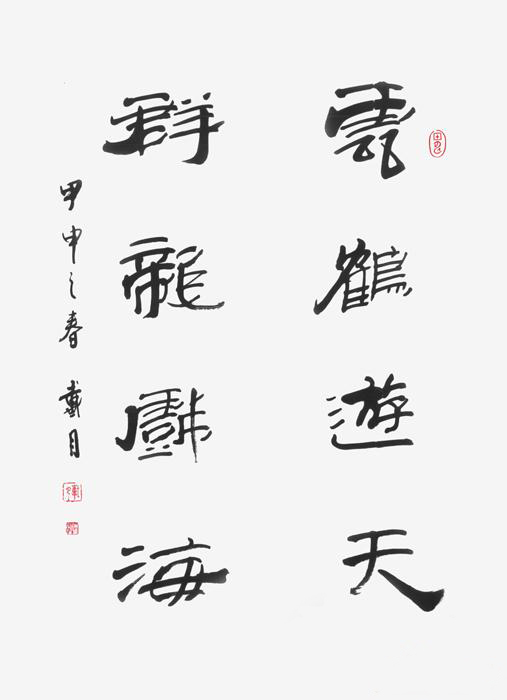 雲鶴遊天
群龍戲海
甲申之春 戴目